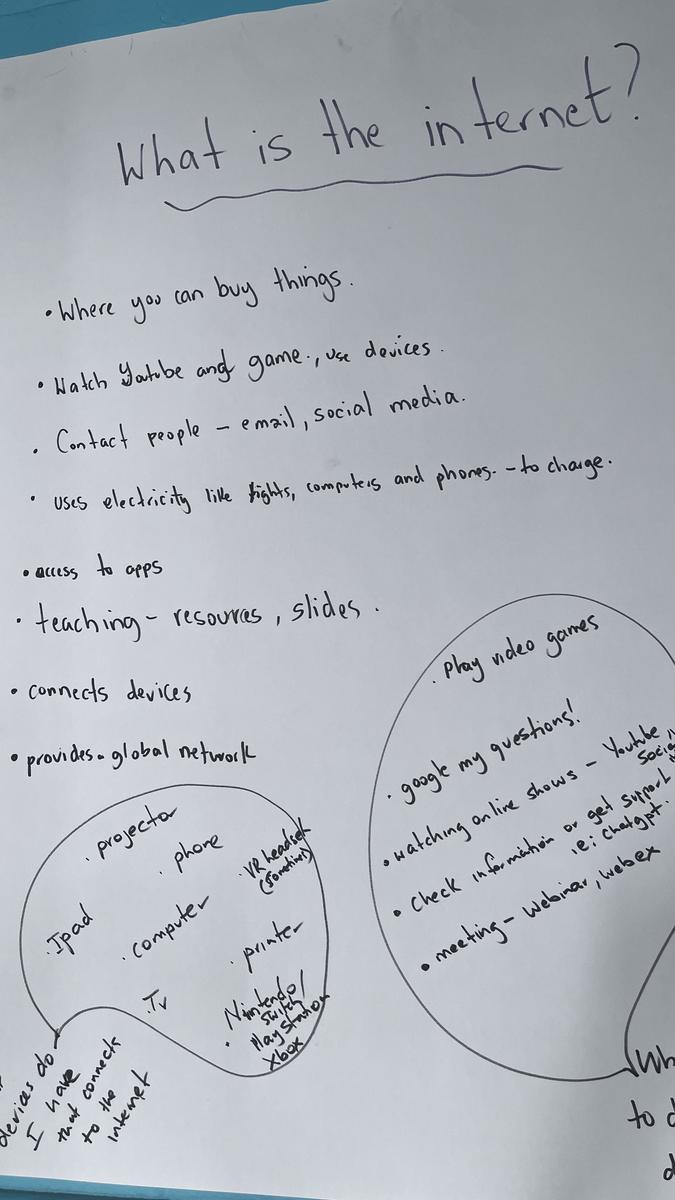 What is the internet?
• Where you can buy things.
• Watch Yatube and game., use devices.
• Contact people - email, social media.
• uses electricity like lights, computers and phones. - to charge.
• access to apps
• teaching - resources, slides.
• connects devices
• provides a global network
• projector
• phone
• VR headset
(sometimes)
• Ipad
• computer
• printer
• Tv
• Nintendo/
switch
Playstation
Xbox
devices do
I have
that connects
to the
internet
• play video games
• google my questions!
• watching online shows - Youtube,
• check information or get support
ie: chatgpt.
• meeting - webinar, webex
to